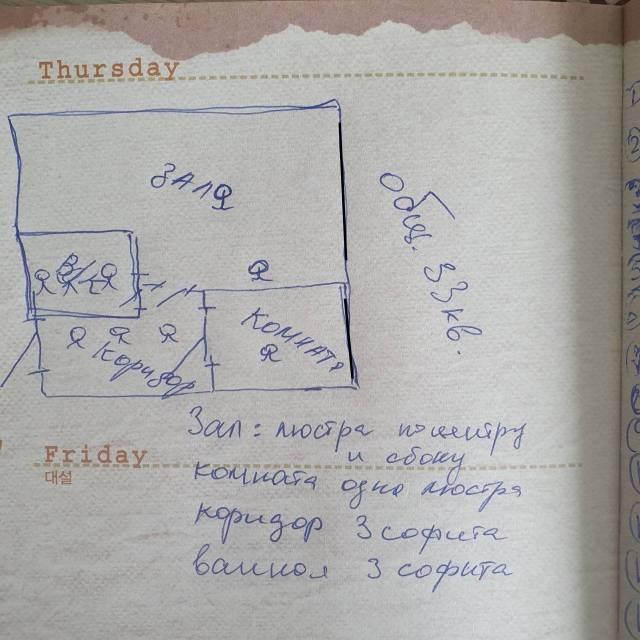 Thursday
ЗАЛ
общ. 33 кв.
В/к
комната
коридор
Зал: люстра по центру
и сбоку
Friday
대설
комната одна люстра
коридор 3 софита
ванная 3 софита